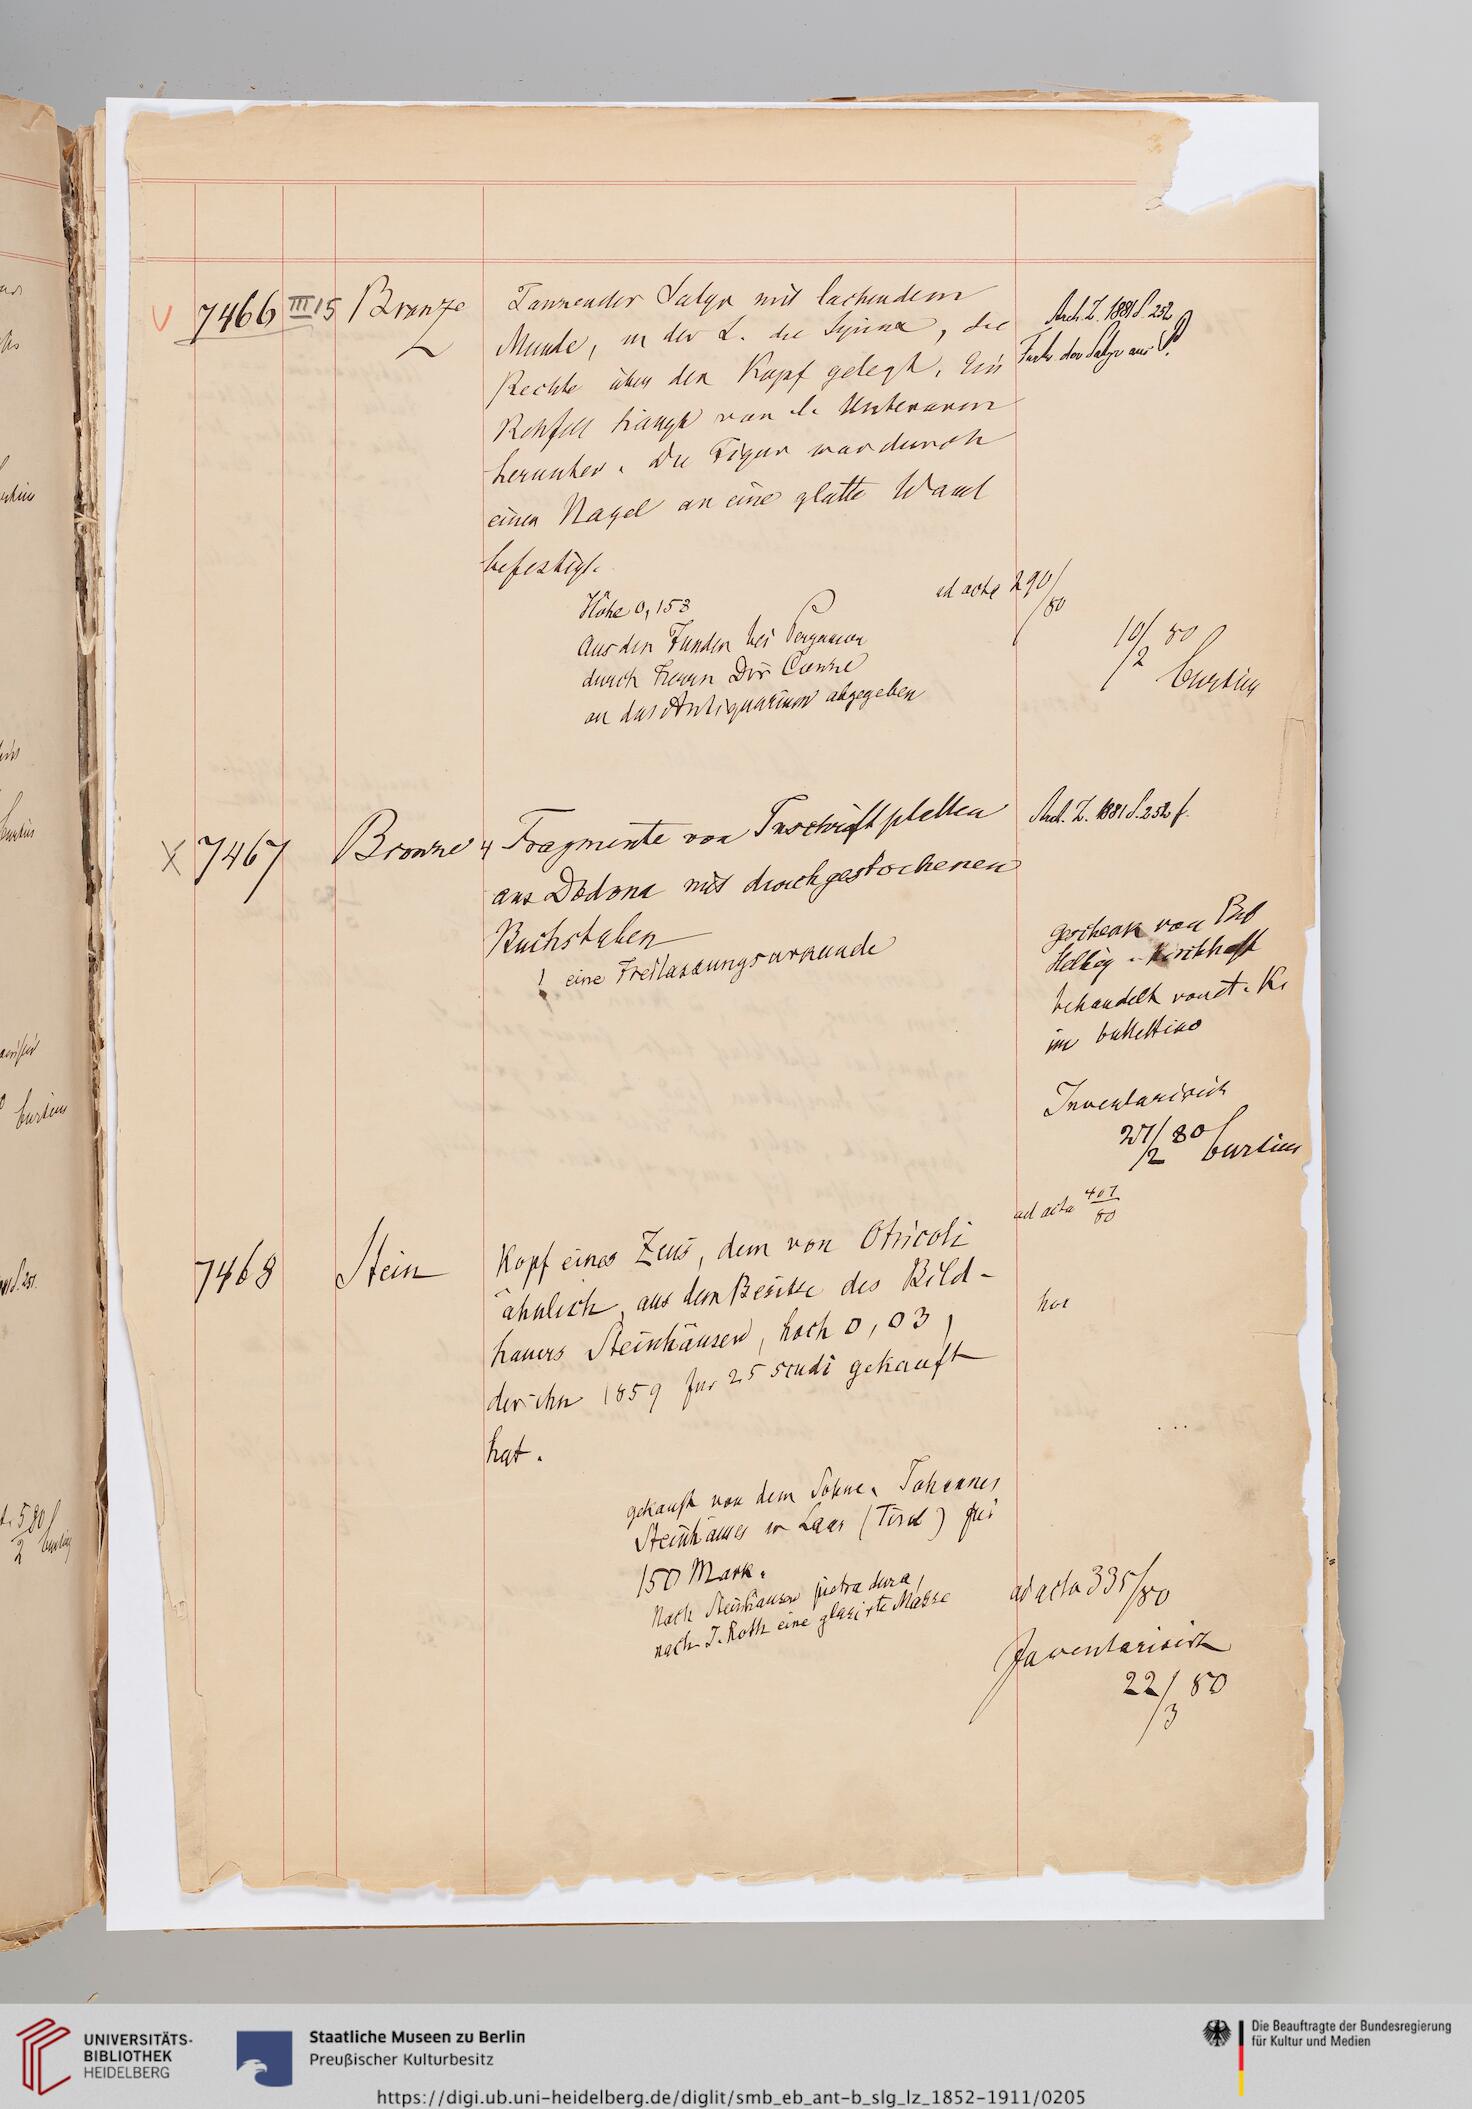 V 7466 III 15 Bronze
Tanzender Satyr mit lachendem
Munde, in der L. die Syrinx, die
Rechte über den Kopf gelegt. Ein
Rehfell hängt von l. Unterarm
herunter. Die Figur war durch
einen Nagel an eine glatte Wand
befestigt.
Arch. Z. 1881 S. 252
Furtw. der Satyr aus P.
Höhe 0,153
Aus den Funden bei Pergamon
durch Herrn Dir. Conze
an das Antiquarium abgegeben
ad acta 290/80
10/2 80
Curtius
X 7467 Bronze
4 Fragmente von Inschriftplatten
aus Dodona mit durchgestochenen
Buchstaben
! eine Freilassungsurkunde
Arch. Z. 1881 S. 252 f.
Geschenk von
Helbig Kirchhoff
behandelt von
im bullettino
Inventarisirt
27/2 80 Curtius
ad acta 407/80
7468 Stein
Kopf eines Zeus, dem von Otricoli
ähnlich, aus dem Besitze des Bild-
hauers Steinhäuser, hoch 0,03,
der ihn 1859 für 25 scudi gekauft
hat.
gekauft von dem Sohne, Johannes
Steinhäuser in Laas (Tirol) für
150 Mark.
Nach Steinhäuser pietra dura,
nach J. Roth eine glasirte Masse
ad acta 335/80
Inventarisirt
22/3 80
UNIVERSITÄTS-
BIBLIOTHEK
HEIDELBERG
Staatliche Museen zu Berlin
Preußischer Kulturbesitz
Die Beauftragte der Bundesregierung
für Kultur und Medien
https://digi.ub.uni-heidelberg.de/diglit/smb_eb_ant-b_slg_lz_1852-1911/0205